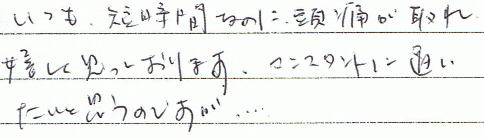 いつも、短時間なのに、頭痛が取れ
嬉しく思っております。コンスタントに通い
たいと思うのですが....